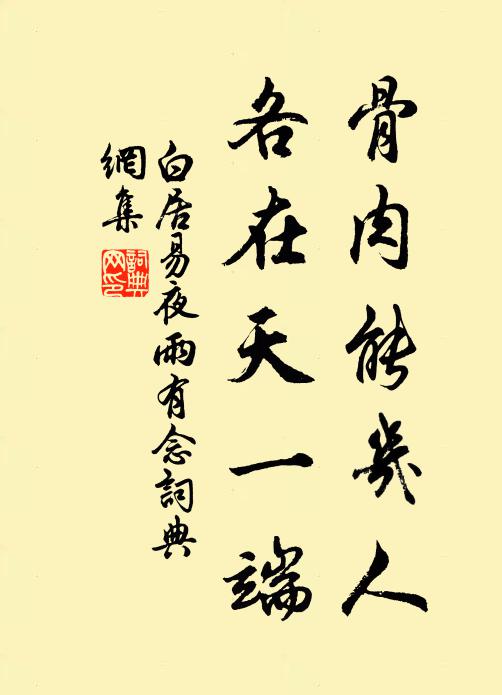 骨肉能幾人
各在天一端
白居易夜雨有念詞典
網集
詞典
网印